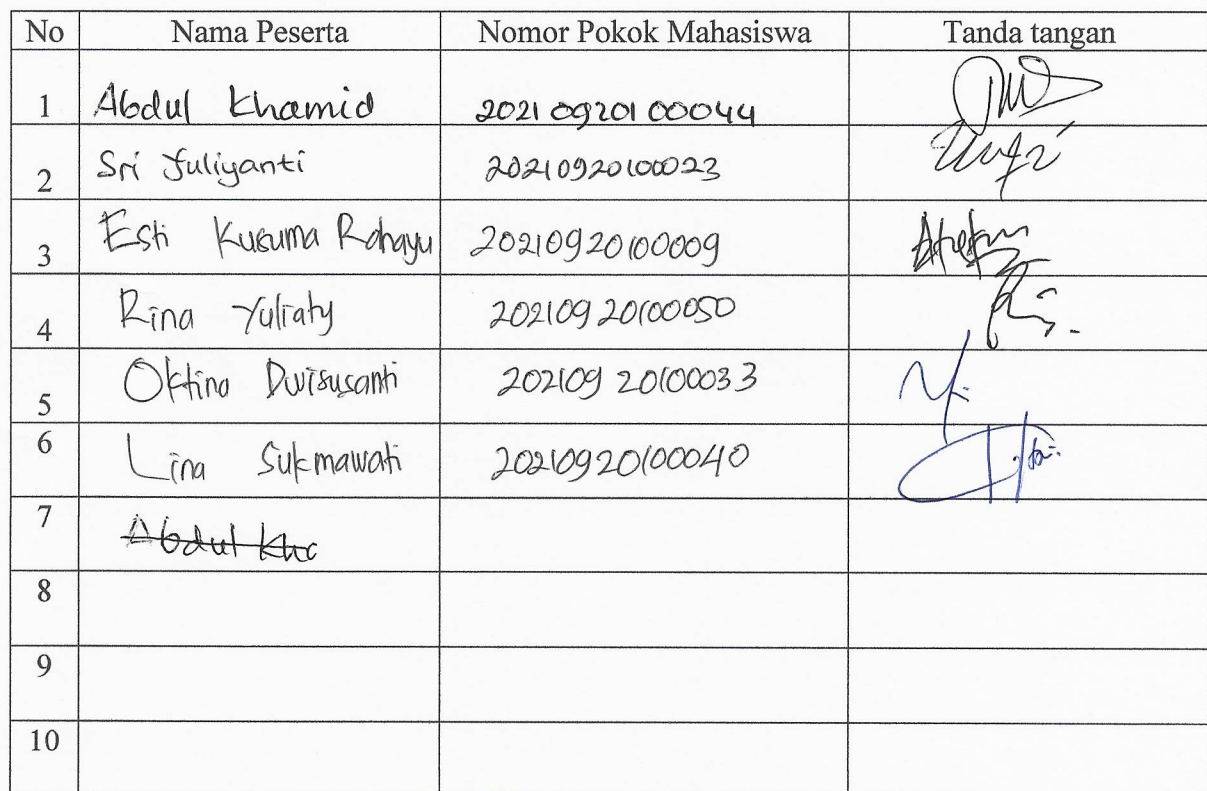 No Nama Peserta Nomor Pokok Mahasiswa Tanda tangan
1 Abdul Khamid 20210920100044
2 Sri Yuliyanti 20210920100023
3 Esti Kusuma Rahayu 20210920100009
4 Rina Yuliaty 20210920100050
5 Oktina Dwisusanti 20210920100033
6 Lina Sukmawati 20210920100040
7 Abdul Kha
8
9
10